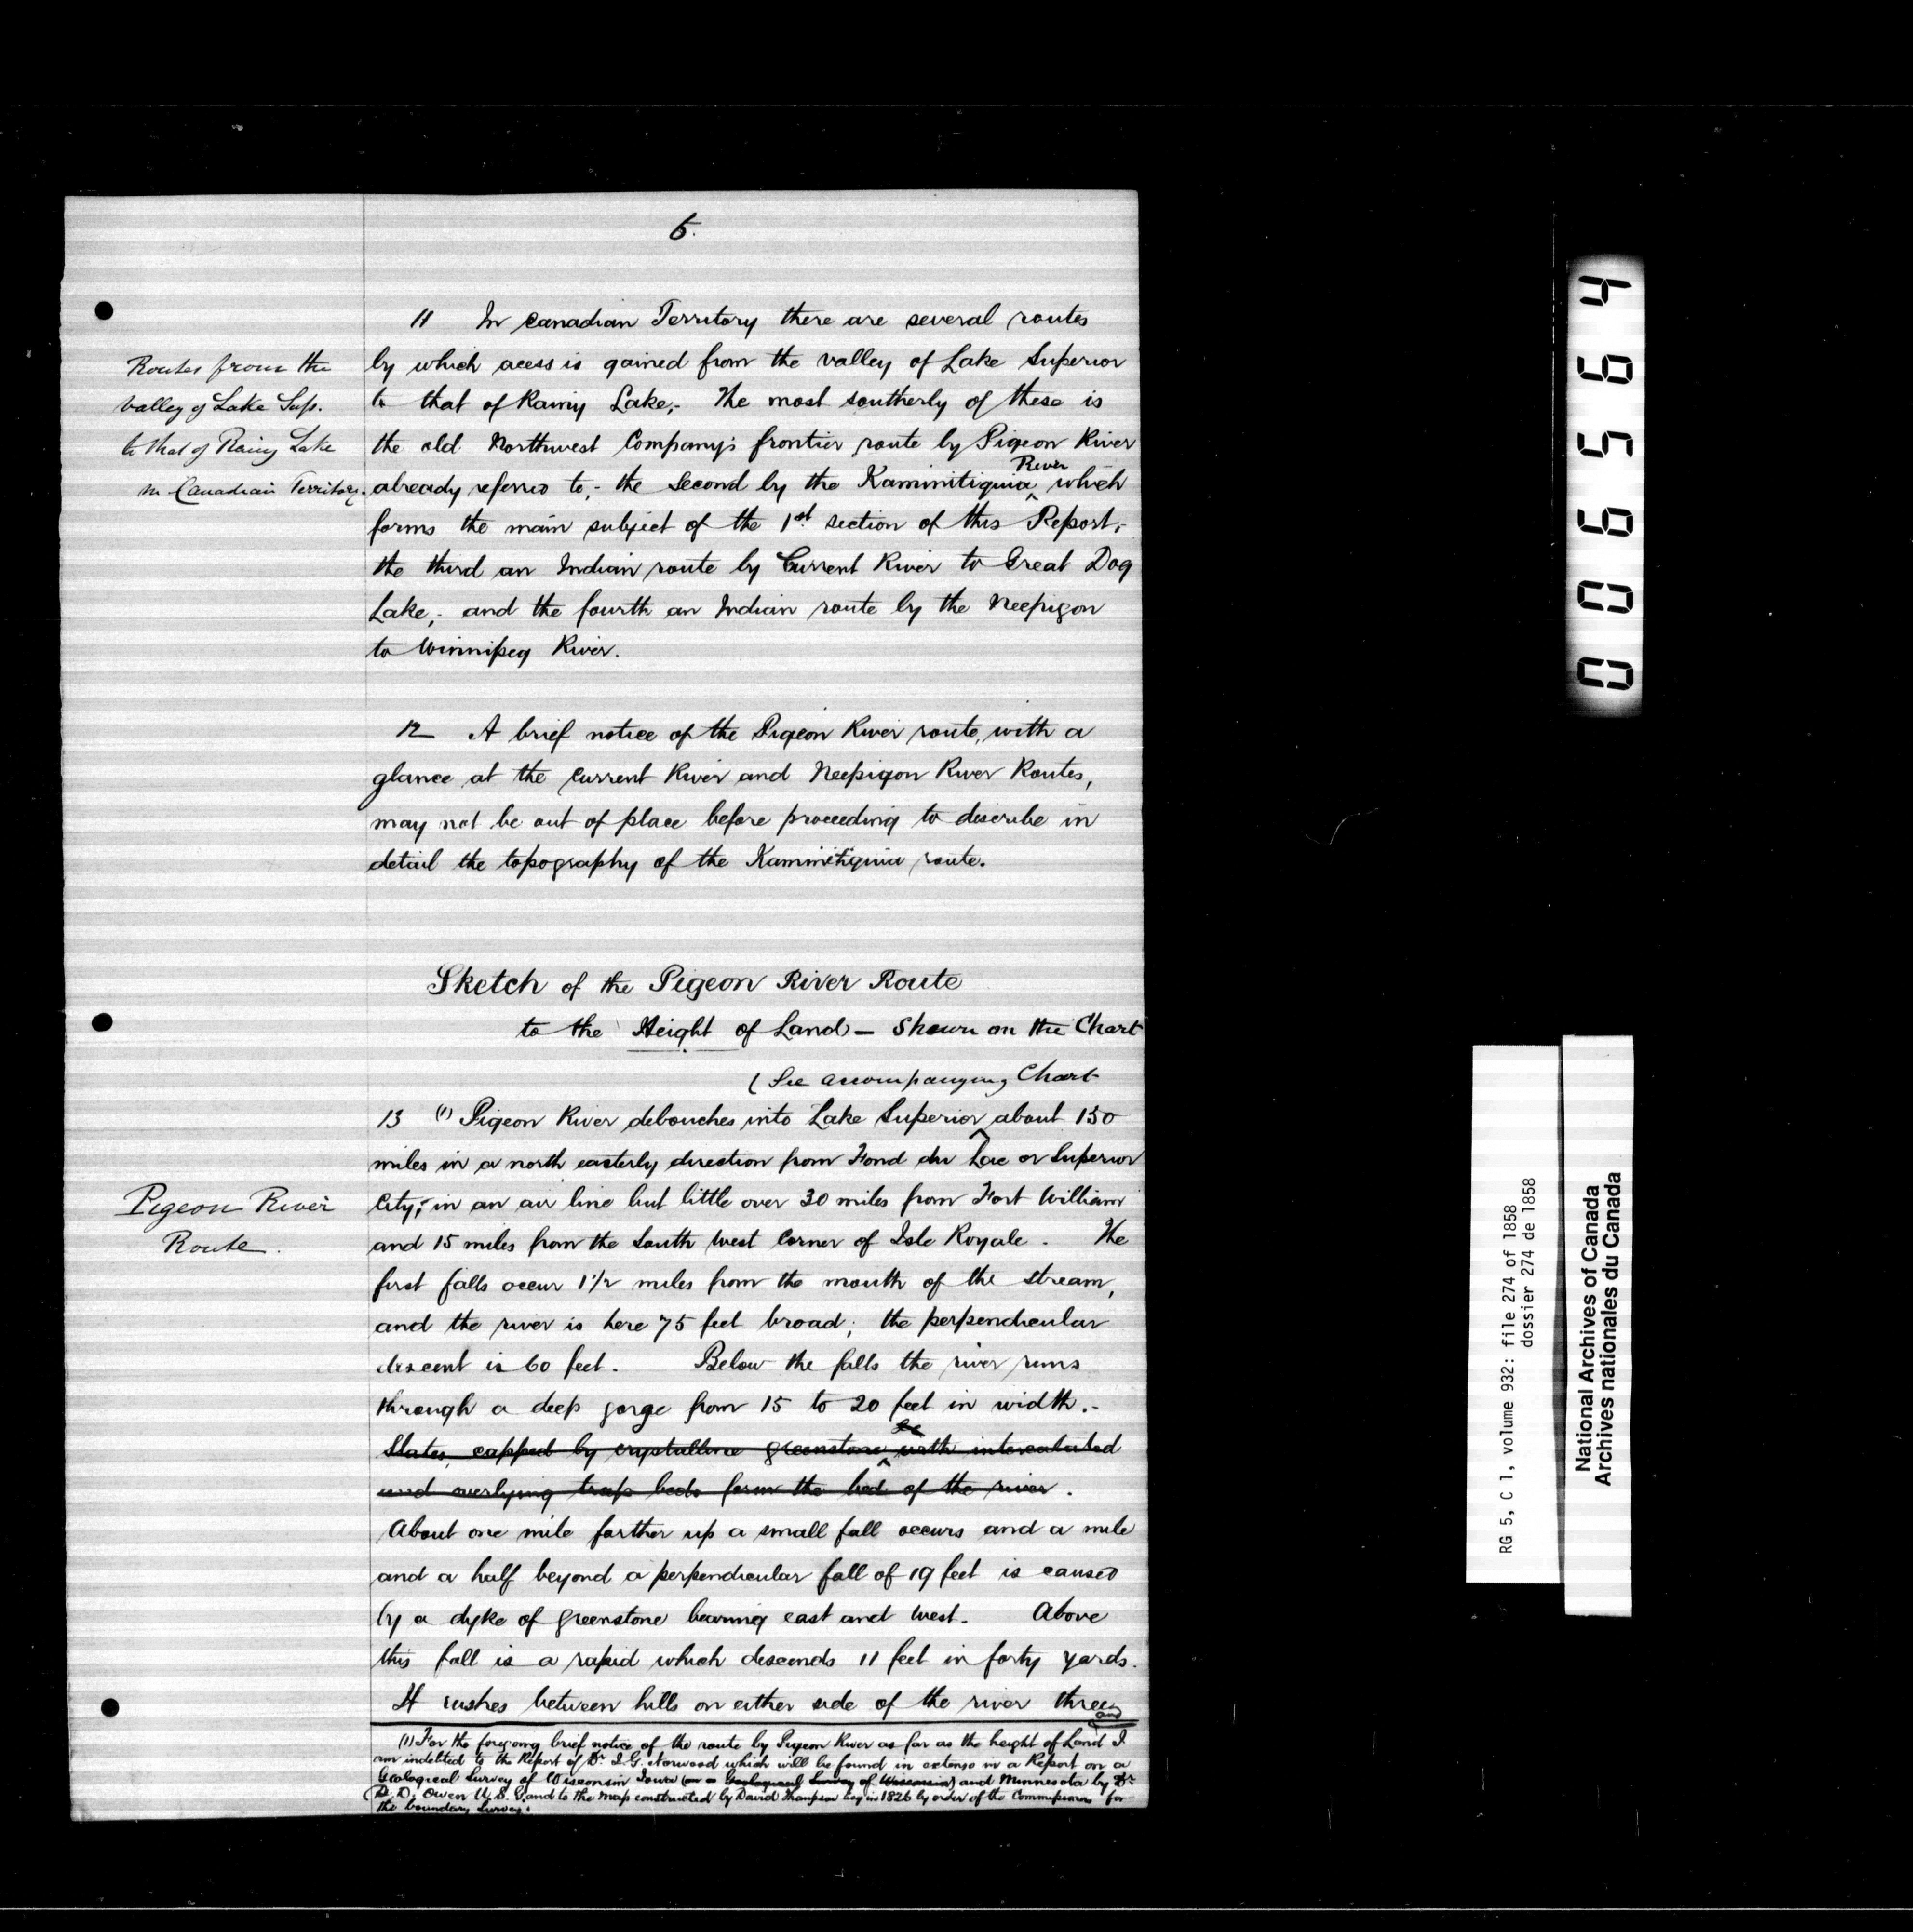 5.
11 In Canadian Territory there are several routes
by which acess is gained from the valley of Lake Superior
to that of Rainy Lake,- The most southerly of these is
the old Northwest Company's frontier route by Pigeon River
already referred to,- the second by the Kaministiquia River which
forms the main subject of the 1st section of this Report,-
the third an Indian route by Current River to Great Dog
Lake,- and the fourth an Indian route by the Neepigon
to Winnipeg River.
Routes from the
valley of Lake Sup.
to that of Rainy Lake
in Canadian Territory.
12 A brief notice of the Pigeon River route, with a
glance at the Current River and Neepigon River Routes,
may not be out of place before proceeding to describe in
detail the topography of the Kaministiquia route.
Sketch of the Pigeon River Route
to the Height of Land - Shewn on the Chart
(See accompanying Chart
13 (1) Pigeon River debouches into Lake Superior about 150
miles in a north easterly direction from Fond du Lac or Superior
City; in an air line but little over 30 miles from Fort William
and 15 miles from the South West Corner of Isle Royale. The
first falls occur 1 1/2 miles from the mouth of the stream,
and the river is here 75 feet broad; the perpendicular
descent is 60 feet. Below the falls the river runs
through a deep gorge from 15 to 20 feet in width.-
Slates, capped by crystalline greenstone with intercalated
and overlying trap beds form the bed of the river.
About one mile farther up a small fall occurs and a mile
and a half beyond a perpendicular fall of 19 feet is caused
by a dyke of greenstone bearing east and west. Above
this fall is a rapid which descends 11 feet in forty yards.
It rushes between hills on either side of the river three
and
Pigeon River
Route.
(1) For the foregoing brief notice of the route by Pigeon River as far as the height of Land I
am indebted to the Report of Dr. I. G. Norwood which will be found in extenso in a Report on a
Geological Survey of Wisconsin Iowa (on a Geological Survey of Wisconsin) and Minnesota by Dr
D. D. Owen U.S.G. and to the map constructed by David Thompson Esq in 1826 by order of the Commissioners for
the boundary Survey.
006564
RG 5, C 1, volume 932: file 274 of 1858
dossier 274 de 1858
National Archives of Canada
Archives nationales du Canada